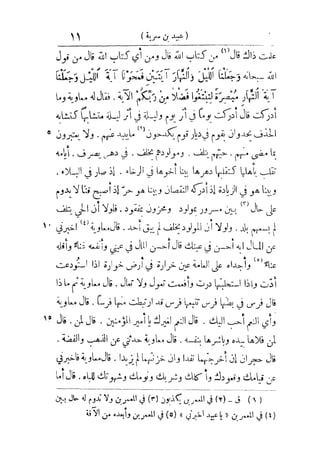 ( عبيد بن سرية ) ١١
علمت ذاك قال (١) من كتاب الله قال ومن أي كتاب الله قال من قول
الله سبحانه وَجَعَلْنَا اللَّيْلَ وَالنَّهَارَ آيَتَيْنِ فَمَحَوْنَا آيَةَ اللَّيْلِ وَجَعَلْنَا
آيَةَ النَّهَارِ مُبْصِرَةً لِتَبْتَغُوا فَضْلًا مِنْ رَبِّكُمْ الآية . فقال له معاوية وما
ادركت قال أدركت يوما في أثر يوم وليلة في أثر ليلة متشابها كتشابه
الحذف يحدوان بقوم في ديار قوم يكدحون (٢) ما يبيد عنهم . ولا يعتبرون ٥
بما مضى منهم . حيهم يتلف . ومولودهم يخلف . في دهر يصرف . أيامه
تقلب بأهلها كتقلبها دهرها بينا أخوها في الرخاء . اذ صار في البلاء .
وبينا هو في الزيادة اذ أدركه النقصان وبينا هو حرّ اذ أصبح قنّا لا يدوم
على حال (٣) بين مسرور بمولود ومحزون بمفقود . فلولا أن الحي يتلف
لم يسعهم بلد . ولولا أن المولود يخلف لم يبق أحد . قال معاوية (٤) أخبرني ١٠
عن المال أيه أحسن في عينك قال أحسن المال في عيني وأنفعه غناء وأقله
عناء (٥) وأجداه على العامة عين خرارة في أرض خوارة اذا استودعت
أدّت واذا استحلبتها درت وأفعمت تعول ولا تعال . قال معاوية ثم ماذا
قال فرس في بطنها فرس تتبعها فرس قد ارتبطت منها فرسا . قال معاوية
وأي النعم أحب اليك . قال النعم لغيرك يا أمير المؤمنين . قال لمن . قال ١٥
لمن فلاها بيده وباشرها بنفسه . قال معاوية حدثني عن الذهب والفضة .
قال حجران ان أخرجتهما نفدا وان خزنتهما لم يزيدا . قال معاوية فاخبرني
عن قيامك وقعودك وأكلك وشربك ونومك وشهوتك للباه . قال أما
(١) ق – (٢) في المعمرين يكذبون (٣) في المعمرين ولا تدوم له حال بين
(٤) في المعمرين « يا عبيد اخبرني » (٥) في المعمرين وأبعده من الآفة